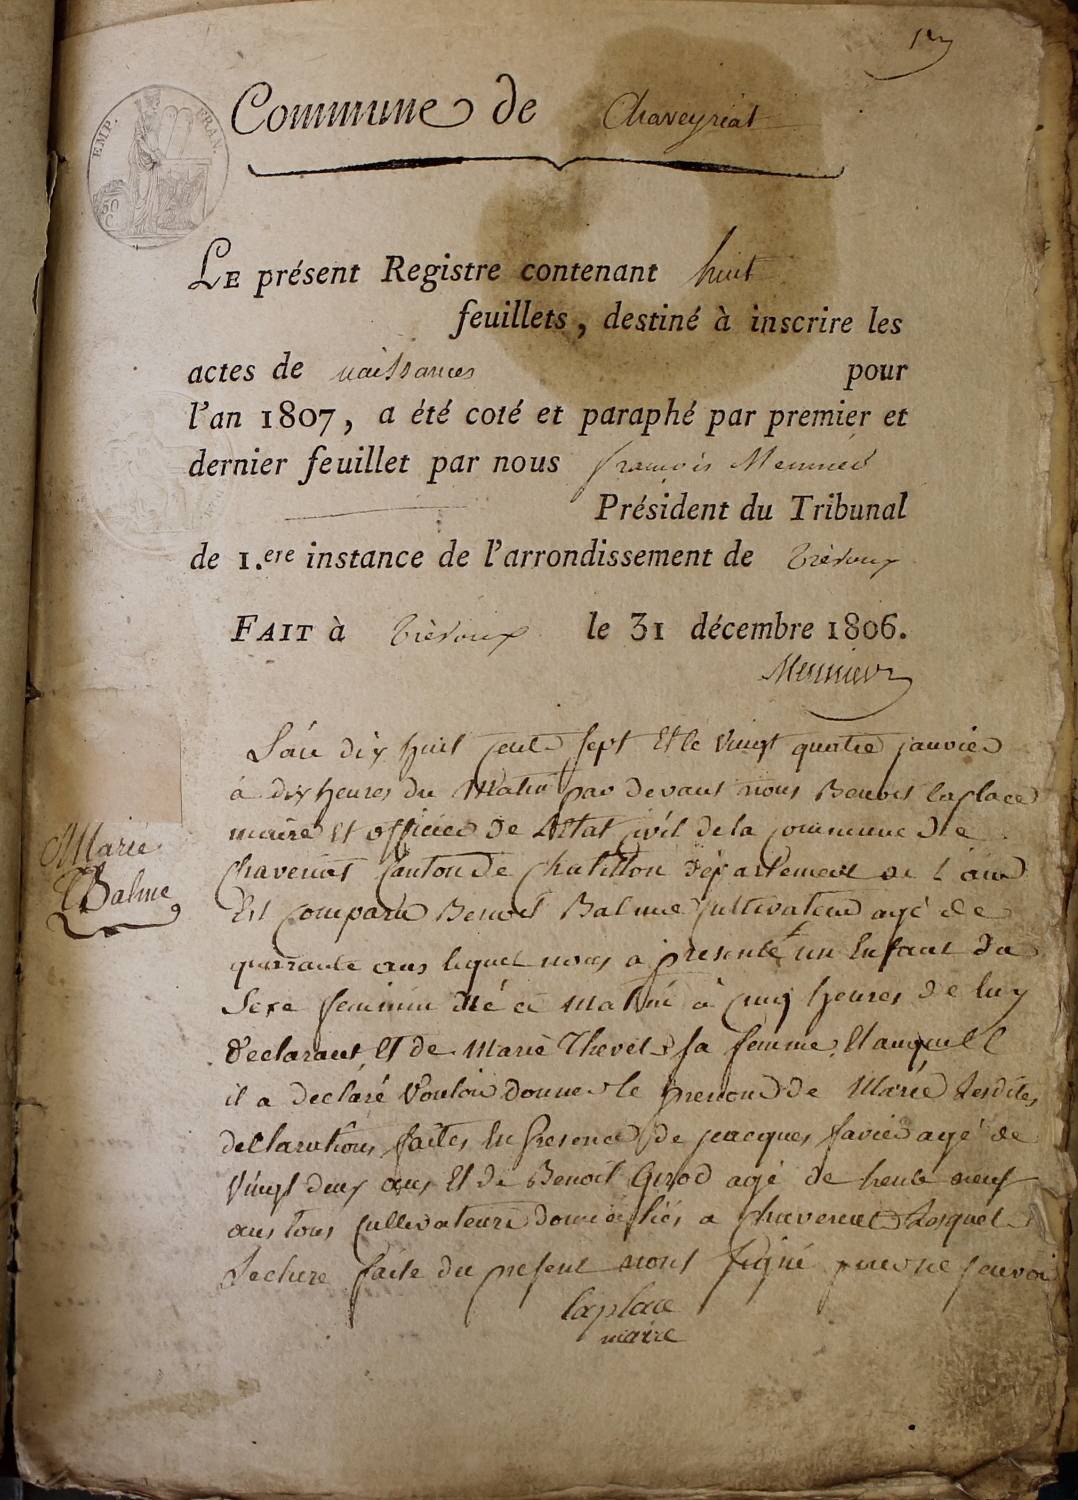 1er
Commune de Chaveyriat
EMP. FRAN.
50 C
LE présent Registre contenant huit
feuillets, destiné à inscrire les
actes de naissances pour
l'an 1807, a été coté et paraphé par premier et
dernier feuillet par nous françois Meunier
Président du Tribunal
de 1.ere instance de l'arrondissement de Trévoux
FAIT à Trévoux le 31 décembre 1806.
Meunier
L'an dix huit cent sept Et le vingt quatre janvier
à dix heures du Matin par devant nous Benoit laplace
maire Et officier de L'Etat civil de la commune de
Chaveriat Canton de Chatillon département de L'ain
Marie
Balme
Est comparu Benoit Balme cultivateur agé de
quarante ans lequel nous a présenté un Enfant du
Sexe feminin Né ce Matin à cinq heures de luy
declarant Et de Marie Thevet sa femme, Et auquel
il a declaré Vouloir donner le prenom de Marie Lesdites
declarations faites En presence de jacques favier agé de
Vingt deux ans Et de Benoit Girod agé de trente neuf
ans tous cultivateurs domiciliés a Chaveriat Lesquels
Lecture faite du present nont signé pour ne scavoir
laplace
maire